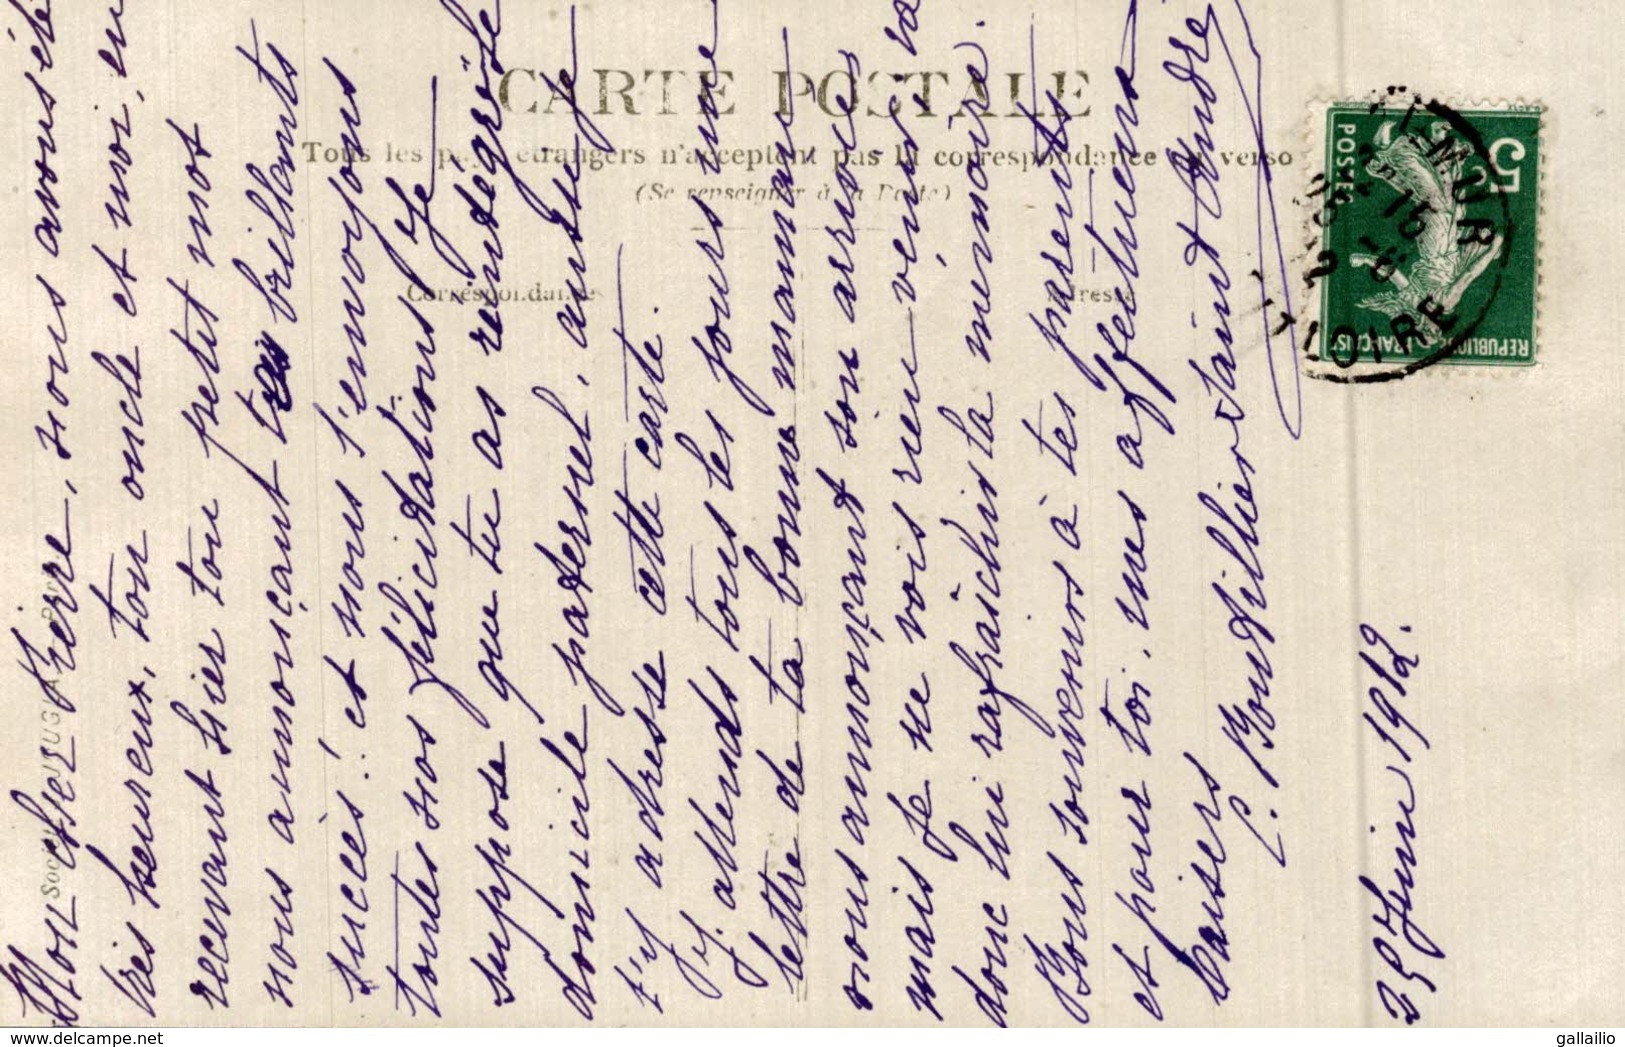 Mon cher Pierre, nous avons été
très heureux, ton oncle et moi, en
recevant hier ton petit mot
nous annonçant tes brillants
succès! et nous t'envoyons
toutes nos félicitations. Je
suppose que tu as réintégré le
domicile paternel, aussi je
t'y adresse cette carte.
J'attends tous les jours une
lettre de ta bonne maman
nous annonçant son arrivée
mais je ne vois rien venir
donc lui rafraîchir la mémoire.
Bons souvenirs à tes parents
et pour toi, mes affectueux
baisers
C. Boutillier Saint André
25 Juin 1912.
CARTE POSTALE
Tous les pays étrangers n'acceptent pas la correspondance au verso
(Se renseigner à la Poste)
Correspondance
Adresse
5
POSTES
REPUBLIQUE FRANÇAISE
LOIRE
gallailio
www.delcampe.net